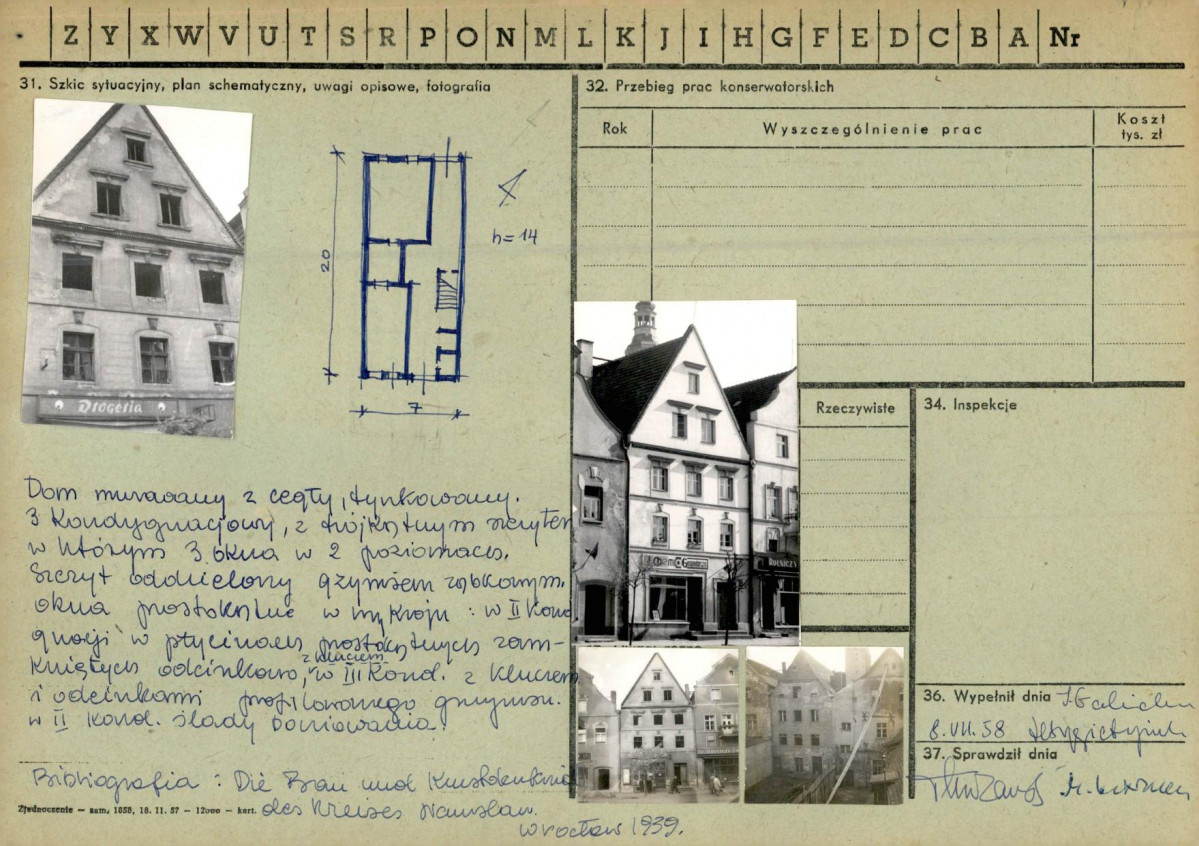 Z Y X W V U T S R P O N M L K J I H G F E D C B A Nr
31. Szkic sytuacyjny, plan schematyczny, uwagi opisowe, fotografia
20
7
h=14
Drogeria
Dom murowany z cegły, tynkowany.
3 kondygnacjowy, z trójkątnym szczytem
w którym 3 okna w 2 poziomach.
Szczyt oddzielony gzymsem ząbkowym.
okna prostokątne w wykroju : w II kond
gnacji w płycinach prostokątnych zam-
kniętych odcinkowo, z kluczem w III Kond. z kluczem
i odcinkami profilowanego gzymsu.
w II kond. ślady boniowania.
Bibliografia : Die Bau und Kunstdenkmä
des Kreises Namslau.
Wrocław 1939.
Zjednoczenie — zam. 1858, 18. 11. 57 — 12000 — kart.
32. Przebieg prac konserwatorskich
Rok
Wyszczególnienie prac
Koszt
tys. zł
ROLNICZY
Rzeczywiste
34. Inspekcje
36. Wypełnił dnia
8.VII.58
37. Sprawdził dnia